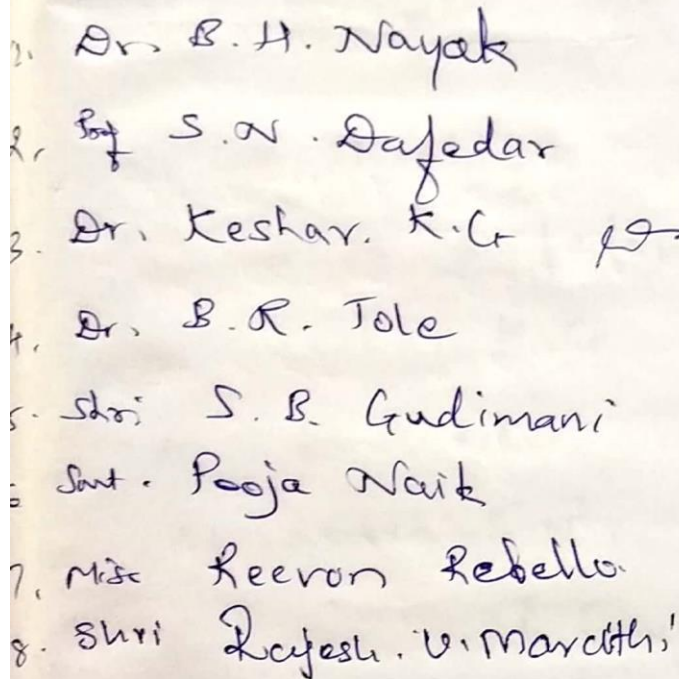 1. Dr. B. H. Nayak
2. Prof S. N. Dafedar
3. Dr. Keshav. K. G
4. Dr. B. R. Tole
5. Shri S. B. Gudimani
6 Smt. Pooja Naik
7. Miss Reevon Rebello.
8. Shri Rajesh. V. Marathi